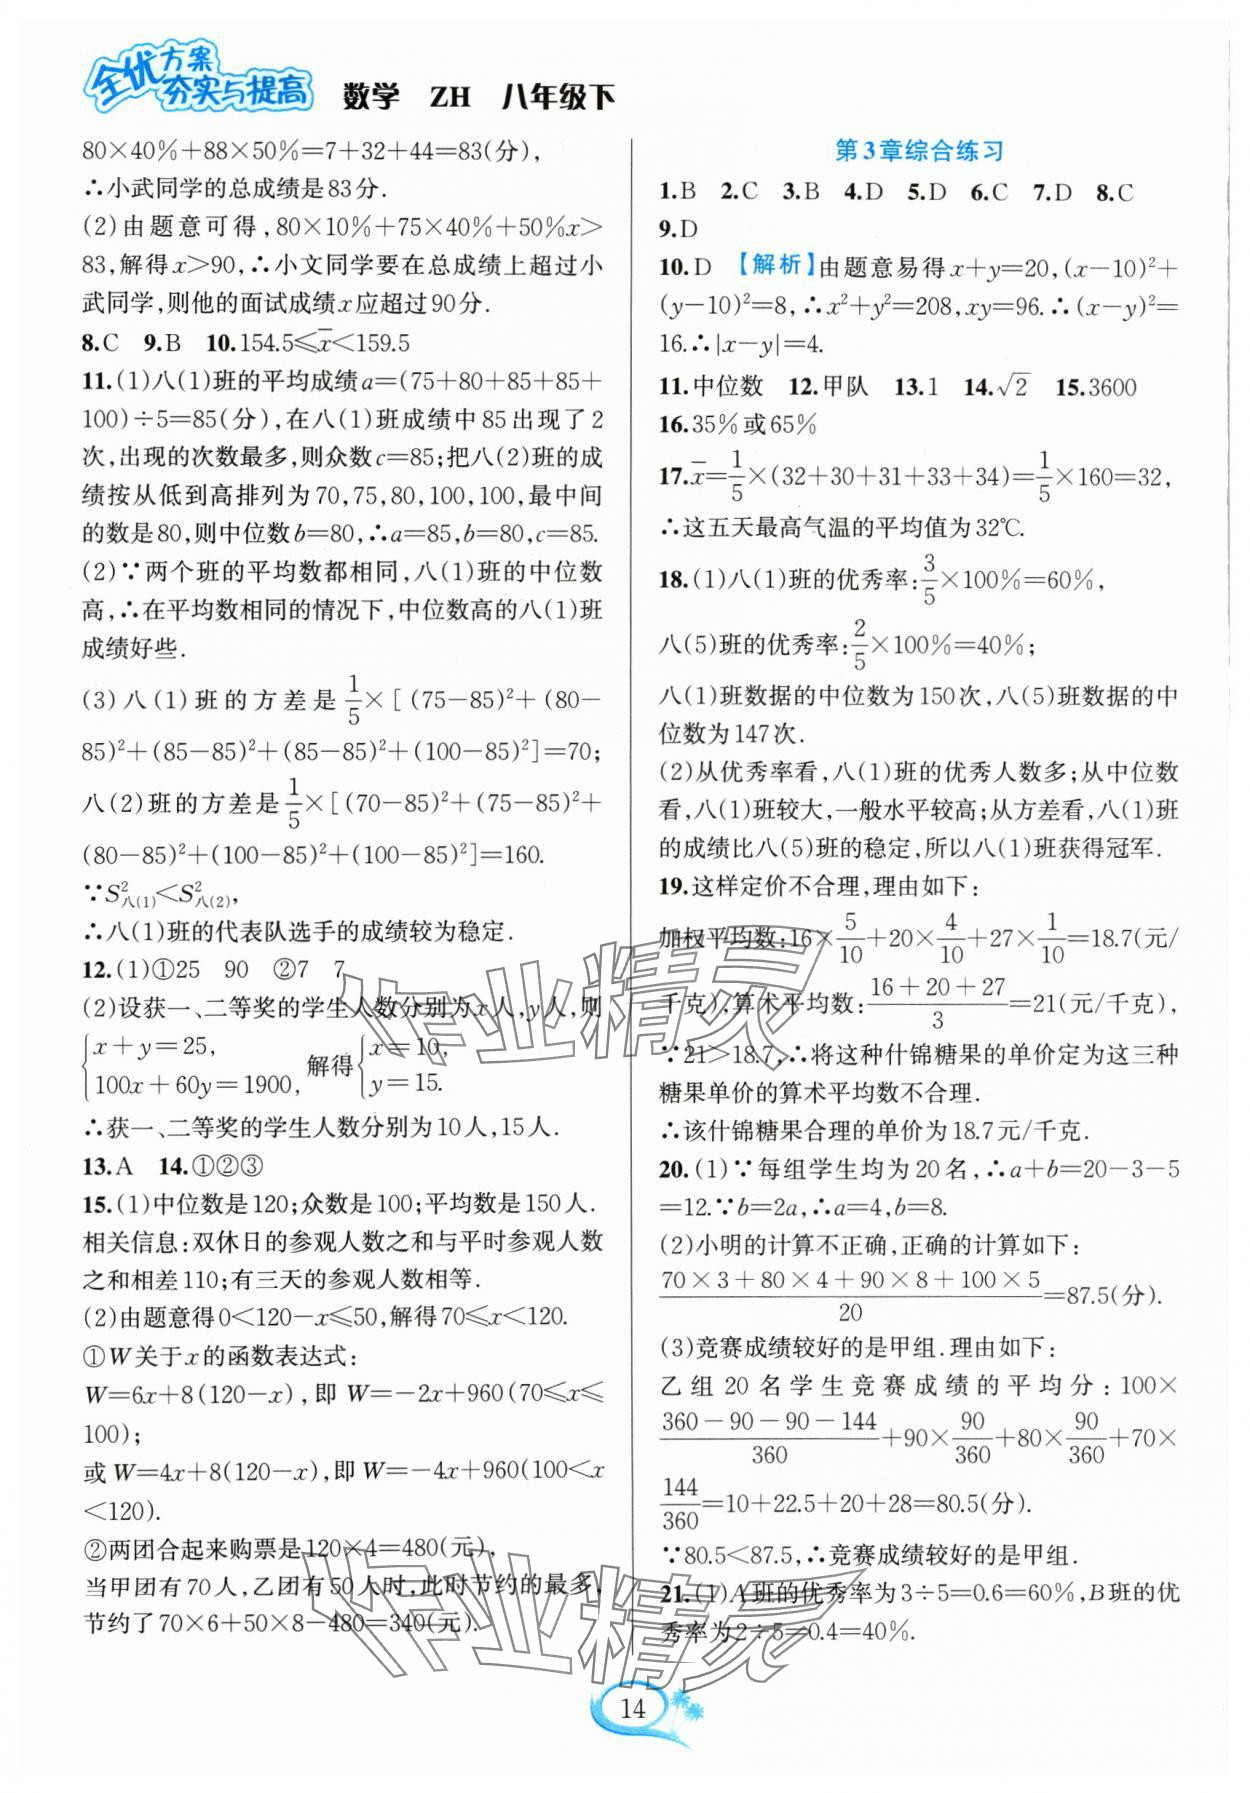 全优方案
夯实与提高
数学 ZH 八年级下
80×40%+88×50%=7+32+44=83(分),
∴小武同学的总成绩是83分.
(2)由题意可得,80×10%+75×40%+50%x>
83,解得x>90,∴小文同学要在总成绩上超过小
武同学,则他的面试成绩x应超过90分.
8.C 9.B 10.154.5≤x̄<159.5
11.(1)八(1)班的平均成绩a=(75+80+85+85+
100)÷5=85(分),在八(1)班成绩中85出现了2
次,出现的次数最多,则众数c=85;把八(2)班的成
绩按从低到高排列为70,75,80,100,100,最中间
的数是80,则中位数b=80,∴a=85,b=80,c=85.
(2)∵两个班的平均数都相同,八(1)班的中位数
高,∴在平均数相同的情况下,中位数高的八(1)班
成绩好些.
(3)八(1)班的方差是1/5×[(75-85)²+(80-
85)²+(85-85)²+(85-85)²+(100-85)²]=70;
八(2)班的方差是1/5×[(70-85)²+(75-85)²+
(80-85)²+(100-85)²+(100-85)²]=160.
∵S²八(1)<S²八(2),
∴八(1)班的代表队选手的成绩较为稳定.
12.(1)①25 90 ②7 7
(2)设获一、二等奖的学生人数分别为x人,y人,则
{x+y=25, 100x+60y=1900, 解得{x=10, y=15.
∴获一、二等奖的学生人数分别为10人,15人.
13.A 14.①②③
15.(1)中位数是120;众数是100;平均数是150人.
相关信息:双休日的参观人数之和与平时参观人数
之和相差110;有三天的参观人数相等.
(2)由题意得0<120-x≤50,解得70≤x<120.
①W关于x的函数表达式:
W=6x+8(120-x),即W=-2x+960(70≤x≤
100);
或W=4x+8(120-x),即W=-4x+960(100<x
<120).
②两团合起来购票是120×4=480(元),
当甲团有70人,乙团有50人时,此时节约的最多,
节约了70×6+50×8-480=340(元).
第3章综合练习
1.B 2.C 3.B 4.D 5.D 6.C 7.D 8.C
9.D
10.D 【解析】由题意易得x+y=20,(x-10)²+
(y-10)²=8,∴x²+y²=208,xy=96.∴(x-y)²=
16.∴|x-y|=4.
11.中位数 12.甲队 13.1 14.√2 15.3600
16.35%或65%
17.x̄=1/5×(32+30+31+33+34)=1/5×160=32,
∴这五天最高气温的平均值为32℃.
18.(1)八(1)班的优秀率:3/5×100%=60%,
八(5)班的优秀率:2/5×100%=40%;
八(1)班数据的中位数为150次,八(5)班数据的中
位数为147次.
(2)从优秀率看,八(1)班的优秀人数多;从中位数
看,八(1)班较大,一般水平较高;从方差看,八(1)班
的成绩比八(5)班的稳定,所以八(1)班获得冠军.
19.这样定价不合理,理由如下:
加权平均数:16×5/10+20×4/10+27×1/10=18.7(元/
千克),算术平均数:(16+20+27)/3=21(元/千克),
∵21>18.7,∴将这种什锦糖果的单价定为这三种
糖果单价的算术平均数不合理.
∴该什锦糖果合理的单价为18.7元/千克.
20.(1)∵每组学生均为20名,∴a+b=20-3-5
=12.∵b=2a,∴a=4,b=8.
(2)小明的计算不正确,正确的计算如下:
(70×3+80×4+90×8+100×5)/20=87.5(分).
(3)竞赛成绩较好的是甲组.理由如下:
乙组20名学生竞赛成绩的平均分:100×
(360-90-90-144)/360+90×90/360+80×90/360+70×
144/360=10+22.5+20+28=80.5(分).
∵80.5<87.5,∴竞赛成绩较好的是甲组.
21.(1)A班的优秀率为3÷5=0.6=60%,B班的优
秀率为2÷5=0.4=40%.
作业精灵
作业精灵
14